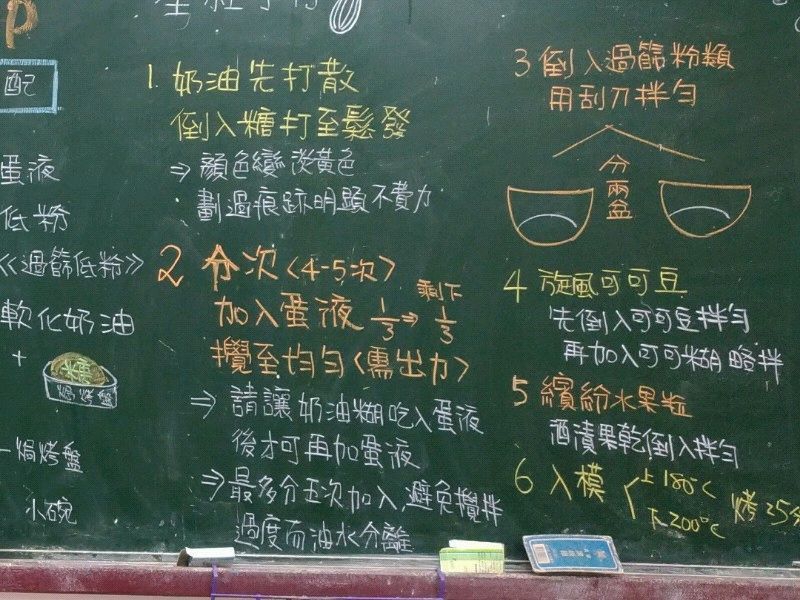 配
蛋液
低粉
《過篩低粉》
軟化奶油
+
糖
焗烤盤
焗烤盤
小碗
1. 奶油先打散
倒入糖打至鬆發
⇒ 顏色變淡黃色
劃過痕跡明顯不費力
2 分次〈4-5次〉
加入蛋液 1/3 ⇒ 剩下 1/3
攪至均勻〈需出力〉
⇒ 請讓奶油糊吃入蛋液
後才可再加蛋液
⇒ 最多分五次加入,避免攪拌
過度而油水分離
3 倒入過篩粉類
用刮刀拌勻
分兩盆
4 旋風可可豆
先倒入可可豆拌勻
再加入可可糊略拌
5 繽紛水果粒
酒漬果乾倒入拌勻
6 入模
上180℃
下200℃
烤25分